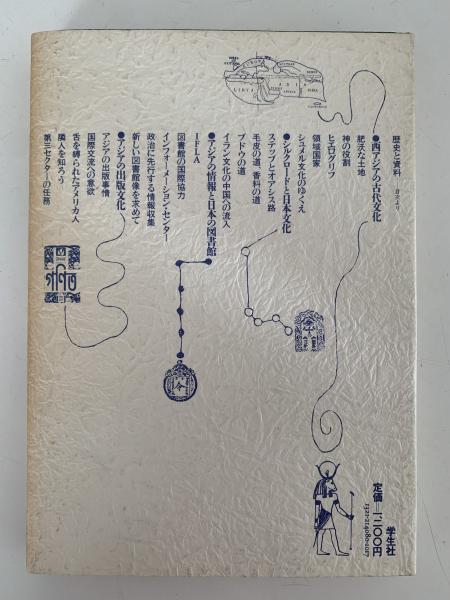 歴史と資料
●西アジアの古代文化
肥沃な土地
神の役割
ヒエログリフ
領域国家
シュメル文化のゆくえ
●シルクロードと日本文化
ステップとオアシス路
毛皮の道、香料の道
ブドウの道
イラン文化の中国への流入
●アジアの情報と日本の図書館
IFLA
図書館の国際協力
インフォーメーション・センター
政治に先行する情報収集
新しい図書館像を求めて
●アジアの出版文化
アジアの出版事情
国際交流への意欲
舌を縛られたアメリカ人
隣人を知ろう
第三セクターの任務
LIBYA
ASIA
令
学生社
定価=一、二〇〇円
1321-214080-1017